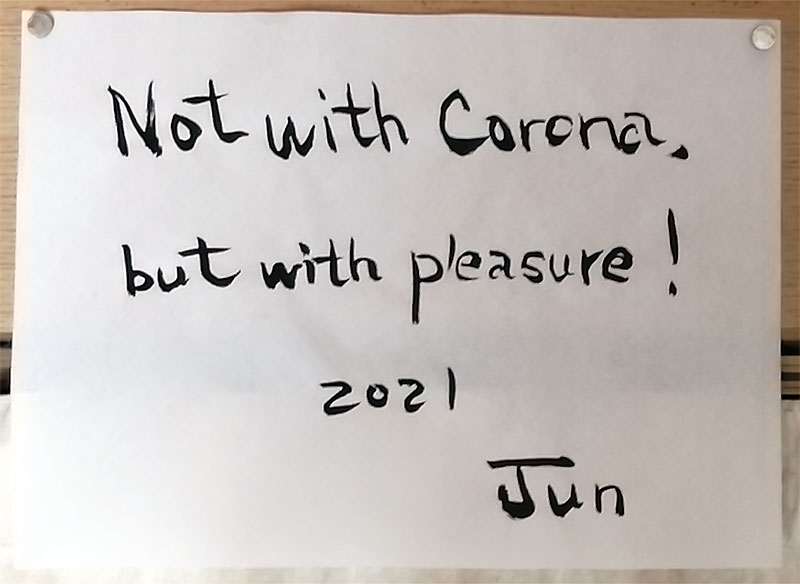 Not with Corona.
but with pleasure!
2021
Jun